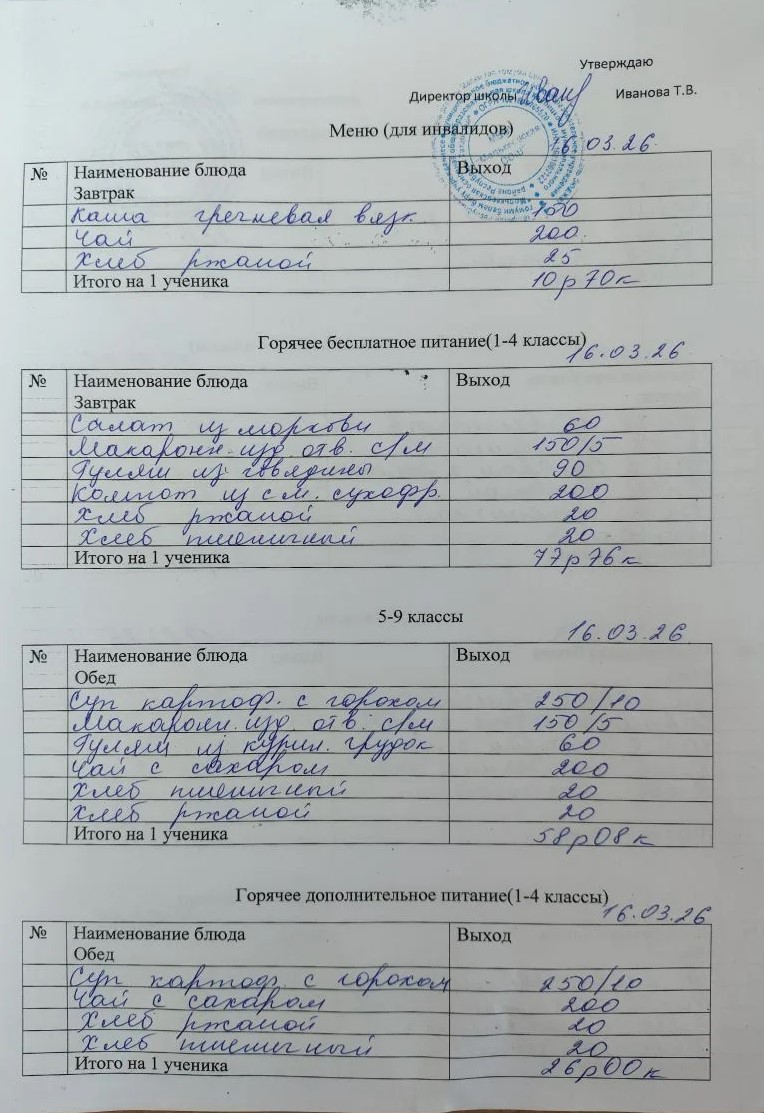 Утверждаю
Директор школы Иванова Т.В.
Меню (для инвалидов)
16.03.26.
№ Наименование блюда Выход
Завтрак
Каша гречневая вязк. 150
Чай 200
Хлеб ржаной 25
Итого на 1 ученика 10р70к
Горячее бесплатное питание(1-4 классы)
16.03.26
№ Наименование блюда Выход
Завтрак
Салат из моркови 60
Макарон. изд. отв. с/м 150/5
Гуляш из говядины 90
Компот из см. сухофр. 200
Хлеб ржаной 20
Хлеб пшеничный 20
Итого на 1 ученика 77р76к
5-9 классы
16.03.26
№ Наименование блюда Выход
Обед
Суп картоф. с горохом 250/10
Макарон. изд. отв. с/м 150/5
Гуляш из курин. грудок 60
Чай с сахаром 200
Хлеб пшеничный 20
Хлеб ржаной 20
Итого на 1 ученика 58р08к
Горячее дополнительное питание(1-4 классы)
16.03.26
№ Наименование блюда Выход
Обед
Суп картоф. с горохом 250/10
Чай с сахаром 200
Хлеб ржаной 20
Хлеб пшеничный 20
Итого на 1 ученика 26р00к